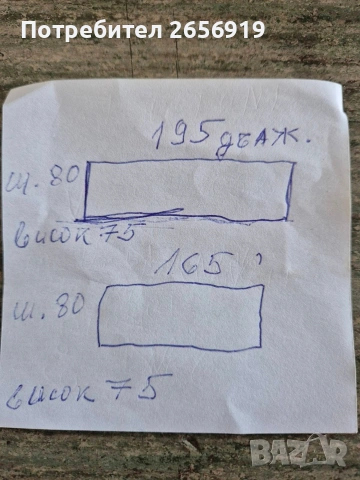 Потребител 2659919
195 дълж.
ш. 80
висок 75
165
ш. 80
висок 75
BAZAR